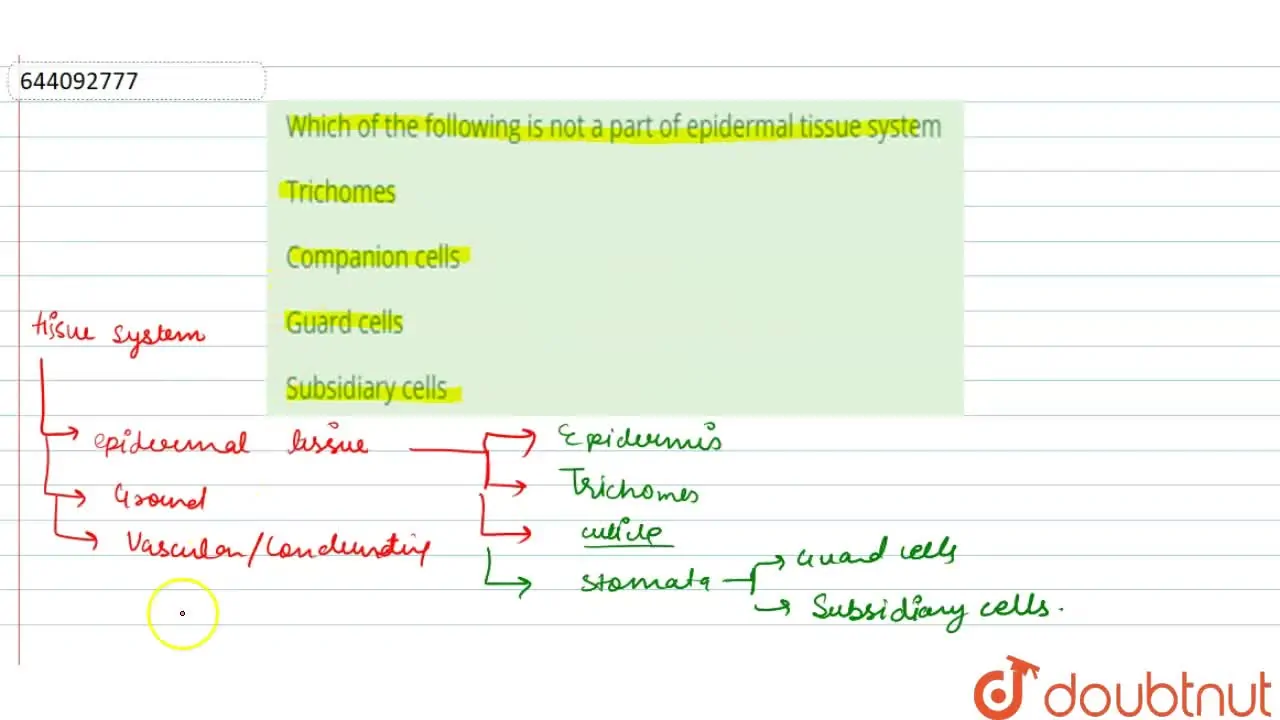 644092777
Which of the following is not a part of epidermal tissue system
Trichomes
Companion cells
Guard cells
Subsidiary cells
tissue system
epidermal tissue
Ground
Vascular/Conducting
Epidermis
Trichomes
cuticle
stomata
Guard cells
Subsidiary cells.
doubtnut